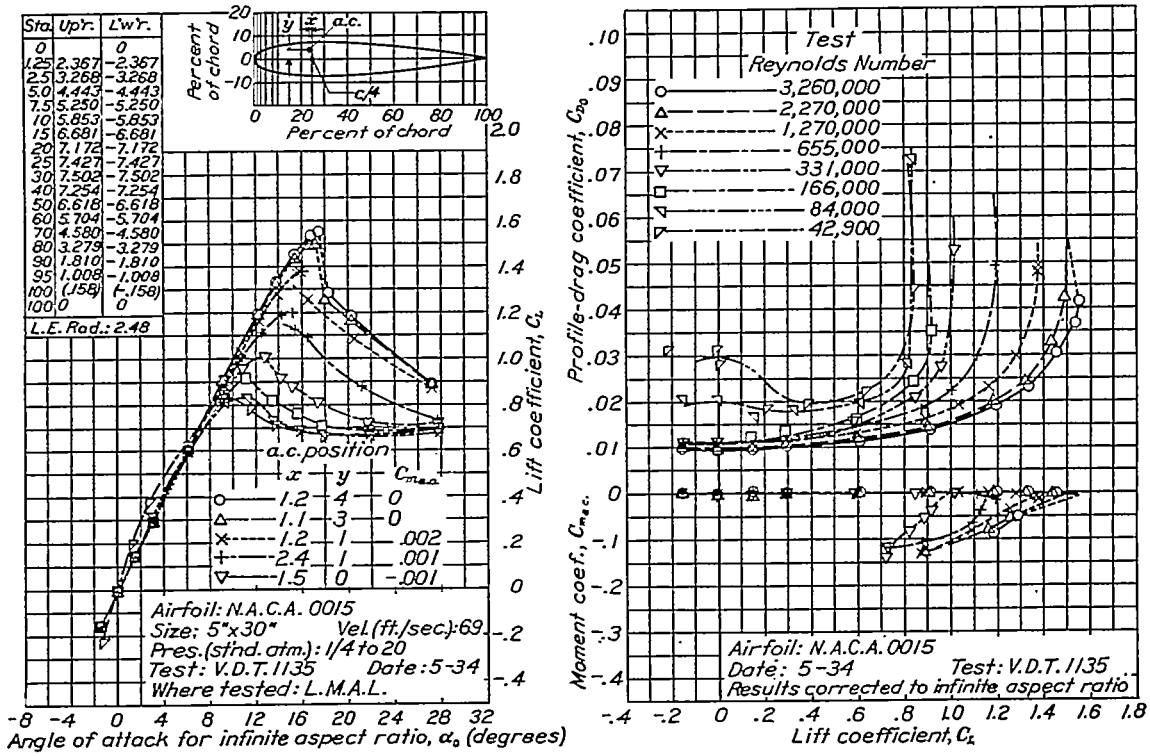 Sta. Up'r. L'w'r.
0 0
1.25 2.367 -2.367
2.5 3.268 -3.268
5.0 4.443 -4.443
7.5 5.250 -5.250
10 5.853 -5.853
15 6.681 -6.681
20 7.172 -7.172
25 7.427 -7.427
30 7.502 -7.502
40 7.254 -7.254
50 6.618 -6.618
60 5.704 -5.704
70 4.580 -4.580
80 3.279 -3.279
90 1.810 -1.810
95 1.008 -1.008
100 (.158) (-.158)
100 0 0
L.E. Rad.: 2.48
Percent of chord
20
10
0
-10
y x a.c.
c/4
0 20 40 60 80 100
Percent of chord
2.0
1.8
1.6
1.4
1.2
1.0
.8
.6
.4
.2
0
-.2
-.4
Lift coefficient, C_L
a.c. position
x y C_m a.c.
1.2 4 0
1.1 3 0
1.2 1 .002
2.4 1 .001
1.5 0 -.001
Airfoil: N.A.C.A. 0015
Size: 5"x30" Vel.(ft./sec.): 69
Pres.(st'nd. atm.): 1/4 to 20
Test: V.D.T. 1135 Date: 5-34
Where tested: L.M.A.L.
-8 -4 0 4 8 12 16 20 24 28 32
Angle of attack for infinite aspect ratio, α₀ (degrees)
.10
.09
.08
.07
.06
.05
.04
.03
.02
.01
0
-.1
-.2
-.3
-.4
Profile-drag coefficient, C_D0
Moment coef., C_m a.c.
Test
Reynolds Number
3,260,000
2,270,000
1,270,000
655,000
331,000
166,000
84,000
42,900
Airfoil: N.A.C.A. 0015
Date: 5-34 Test: V.D.T. 1135
Results corrected to infinite aspect ratio
-.4 -.2 0 .2 .4 .6 .8 1.0 1.2 1.4 1.6 1.8
Lift coefficient, C_L